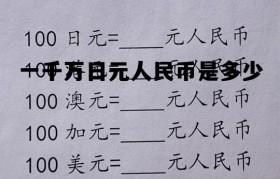 100 日元=____元人民币
一千万日元人民币是多少
100 澳元=____元人民币
100 加元=____元人民币
100 美元=____元人民币